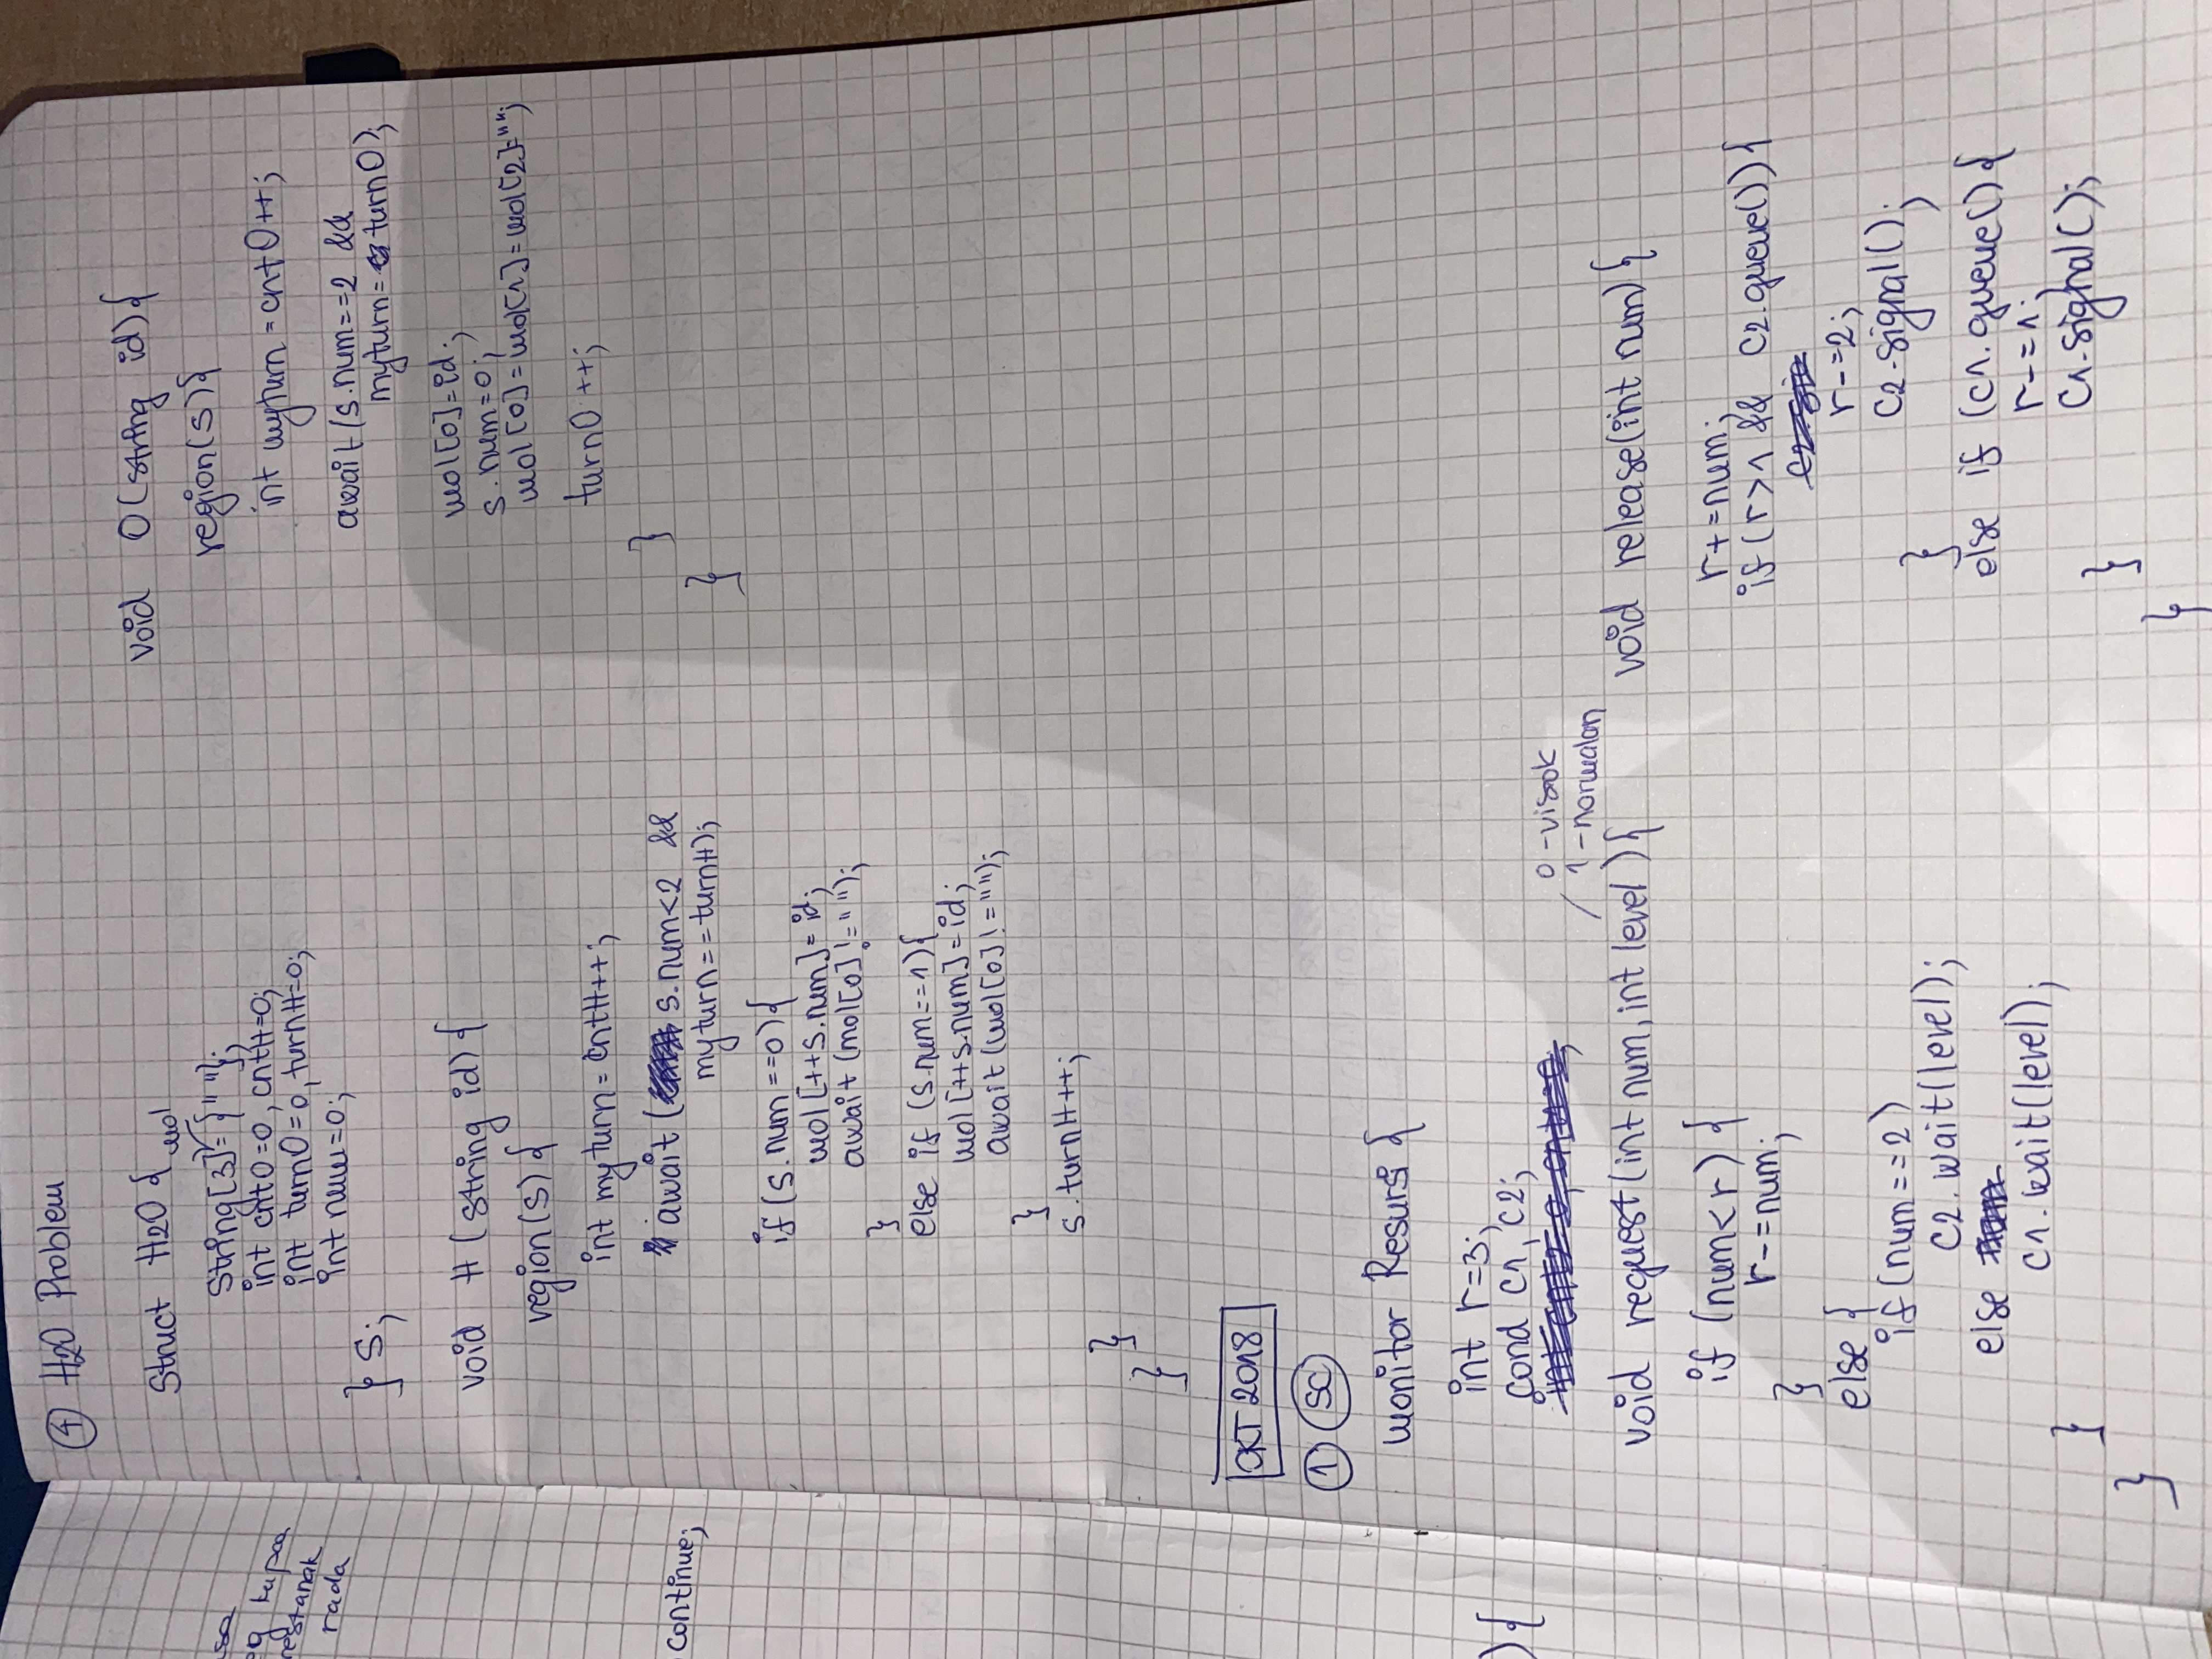 ④ H2O Problem
Struct H2O {
mol
String[3] = {" "};
int cntO=0, cntH=0;
int turnO=0, turnH=0;
int num=0;
} S;
void H (string id) {
region(s) {
int myturn = cntH++;
await ( s.num<2 &&
myturn==turnH);
if (s.num==0) {
mol [++s.num]=id;
await (mol[0] !=" ");
}
else if (s.num==1) {
mol [++s.num]=id;
await (mol[0] !="");
}
s.turnH++;
}
}
void O(string id){
region(s){
int myturn = cntO++;
await (s.num==2 &&
myturn= turnO);
mol[0]=id;
s.num=0;
mol[0]=mol[1]=mol[2]="";
turnO++;
}
}
sa
kupaa
restanak
rada
continue;
){
OKT 2018
① SC
monitor Resursi {
int r=3;
cond c1, c2;
0 -visok
1 -normalan
void request(int num, int level){
if (num<r) {
r-=num;
}
else {
if (num==2)
c2.wait(level);
else
c1.wait(level);
}
}
void release(int num){
r+=num;
if (r>1 && c2.queue()) {
r-=2;
c2.signal();
}
else if (c1.queue() {
r-=1;
c1.signal();
}
}